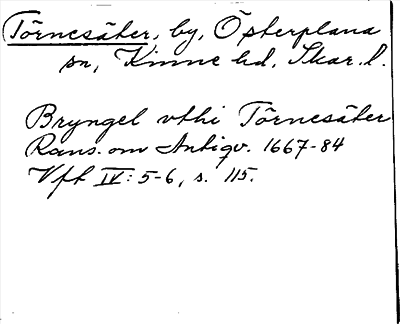 Törnesäter, by, Österplana
sn, Kinne hd, Skar. l.
Bryngel vthi Törnesäter
Rans. om Antiqv. 1667-84
Vfk IV: 5-6, s. 115.